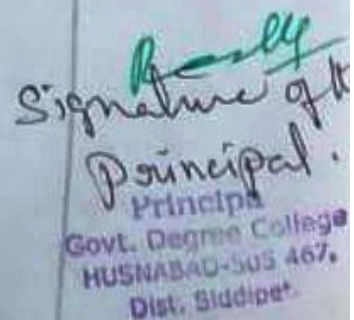 Signature of
Principal.
Principal
Govt. Degree College
HUSNABAD-505 467.
Dist. Siddipet.